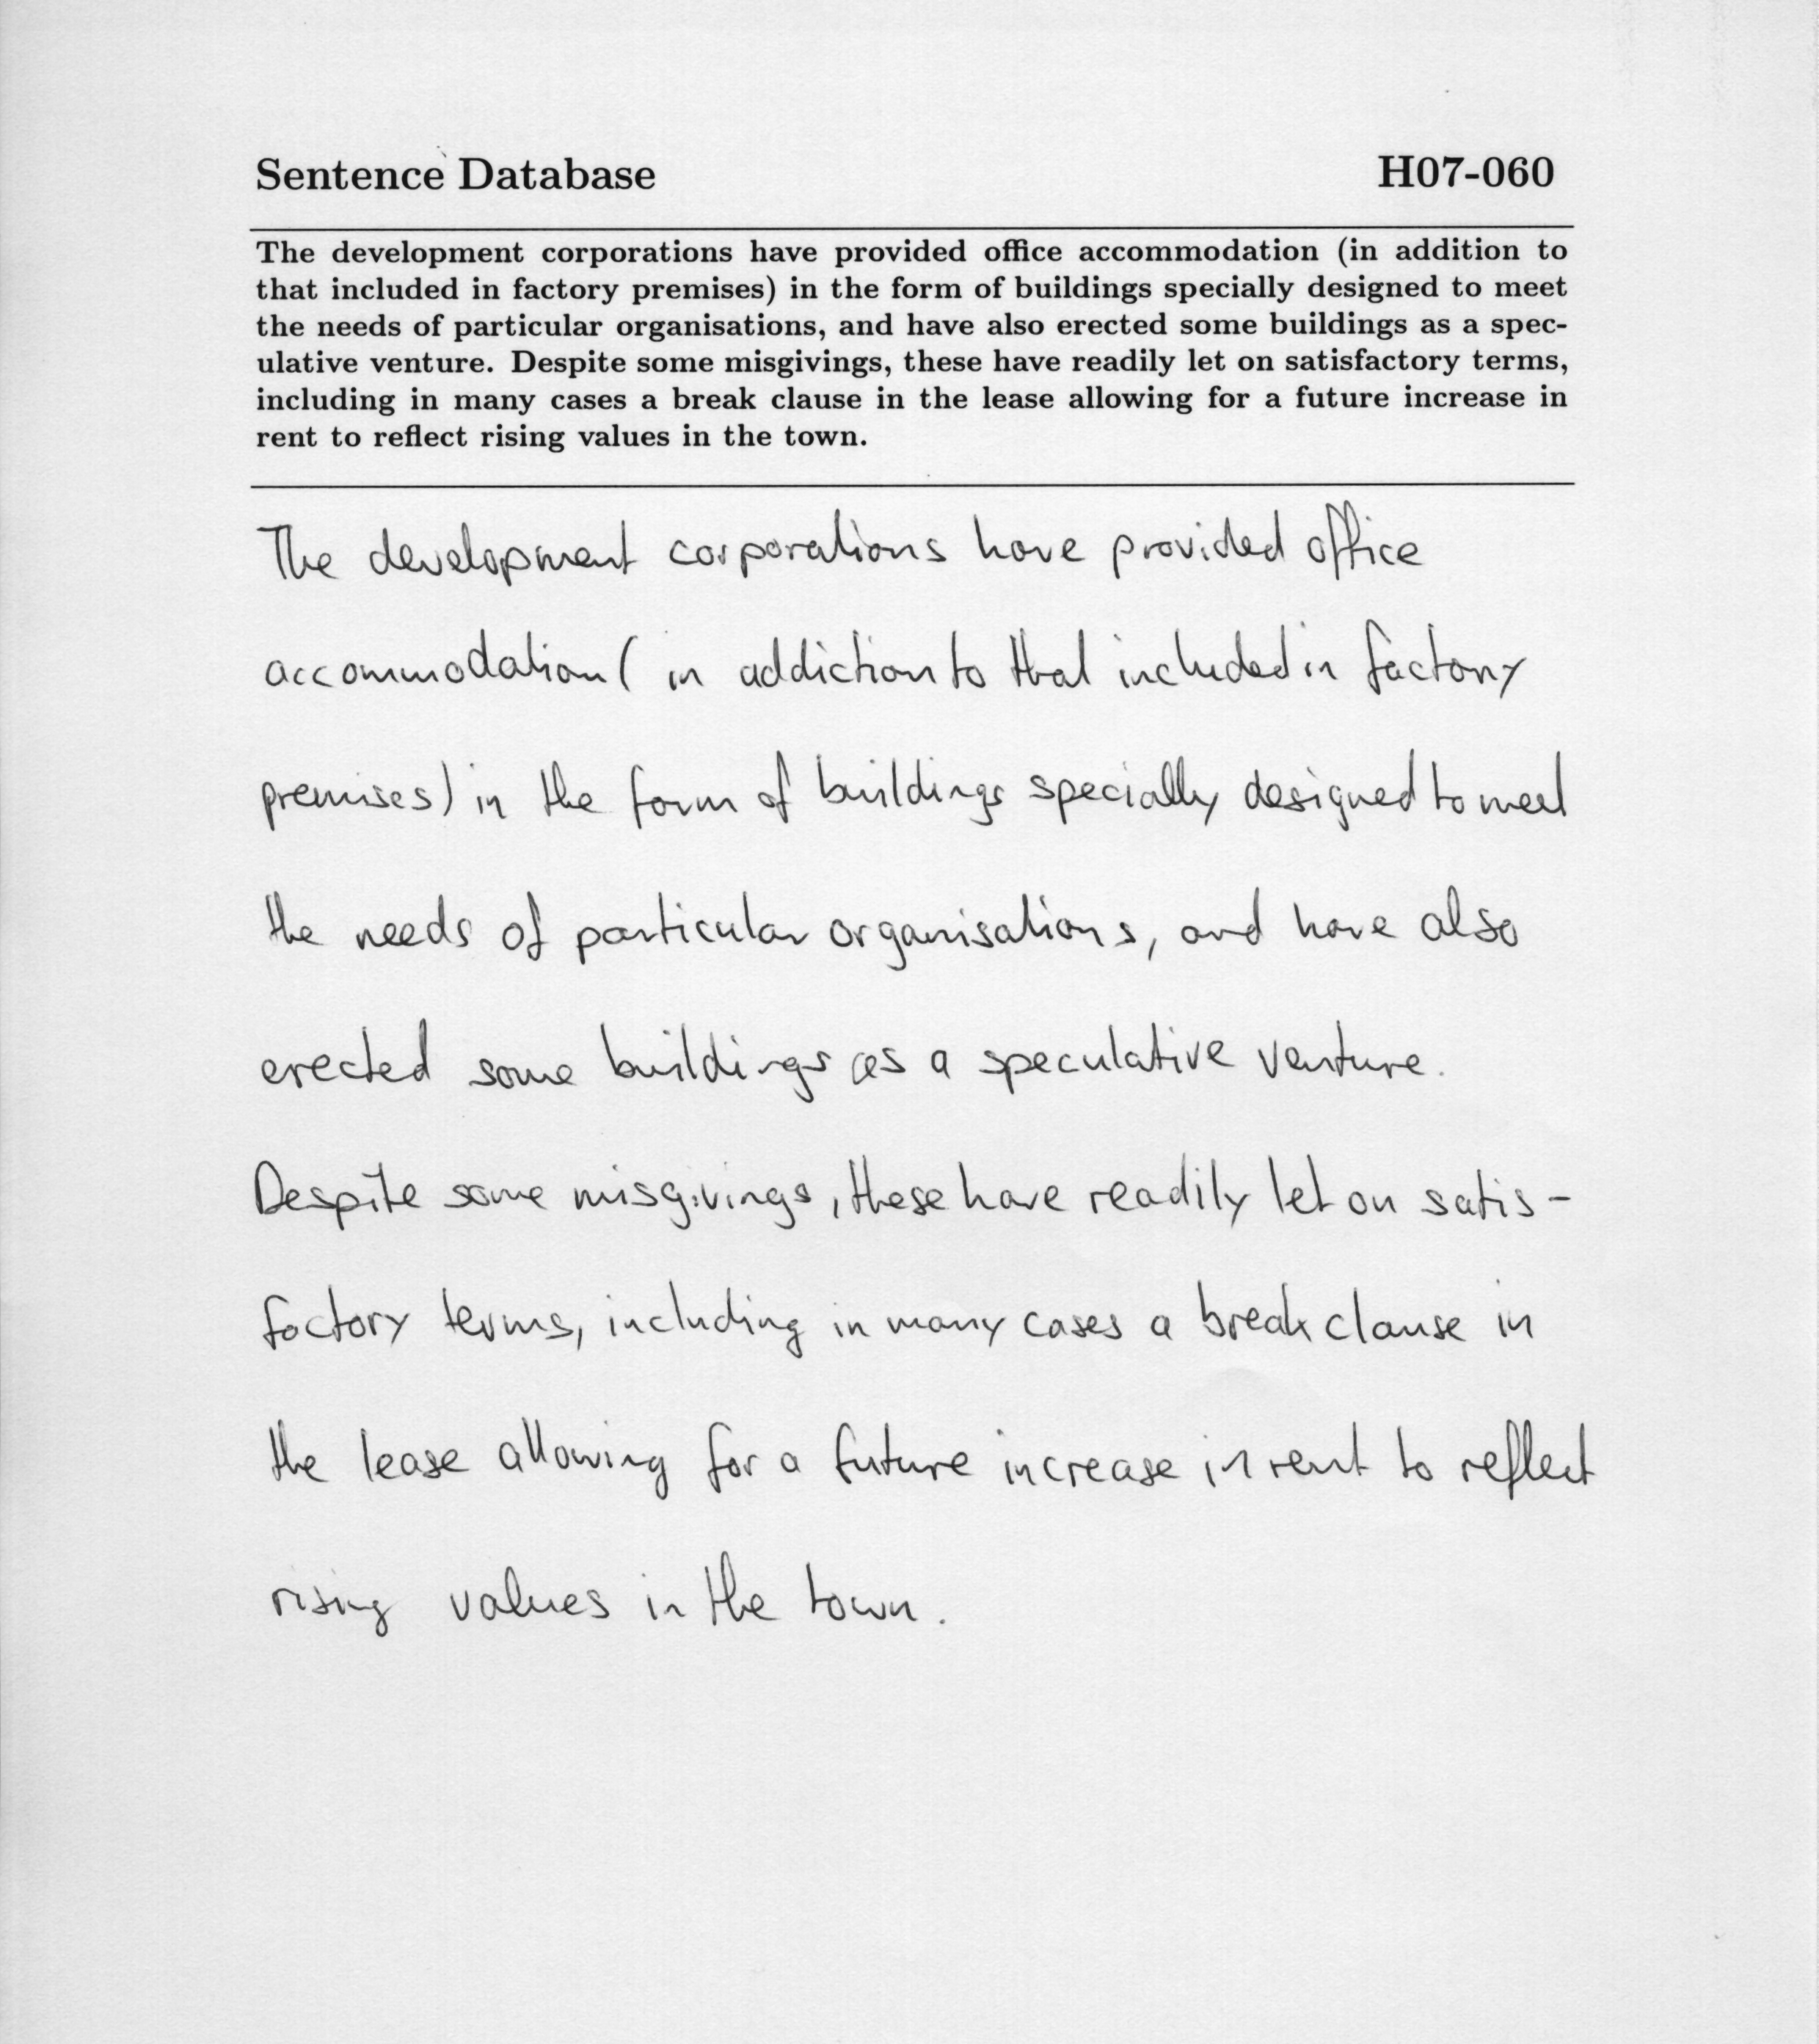 Sentence Database H07-060
The development corporations have provided office accommodation (in addition to
that included in factory premises) in the form of buildings specially designed to meet
the needs of particular organisations, and have also erected some buildings as a spec-
ulative venture. Despite some misgivings, these have readily let on satisfactory terms,
including in many cases a break clause in the lease allowing for a future increase in
rent to reflect rising values in the town.
The development corporations have provided office
accommodation ( in addiction to that included in factory
premises) in the form of buildings specially designed to meet
the needs of particular organisations, and have also
erected some buildings as a speculative venture.
Despite some misgivings, these have readily let on satis-
factory terms, including in many cases a break clause in
the lease allowing for a future increase in rent to reflect
rising values in the town.